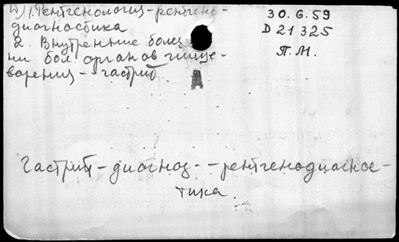 А) 1. Рентгенология-рентгено-
диагностика
2. Внутренние болез
ни бол органов пище-
варения - гастрит
30.6.59
D 21325
П.М.
А
Гастрит - диагноз - рентгенодиагнос-
тика.